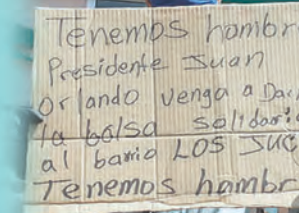 Tenemos hambr
Presidente Juan
Orlando venga a Dar
la bolsa solidari
al barrio LOS JUC
Tenemos hambr